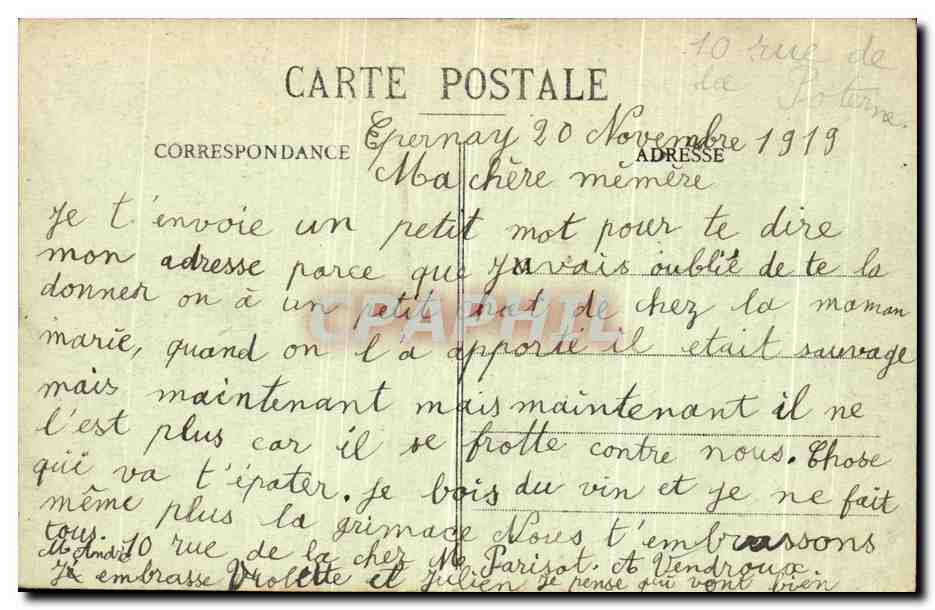 10 rue de
la Poterne.
CARTE POSTALE
CORRESPONDANCE
ADRESSE
Epernay 20 Novembre 1919
Ma chère mémère
Je t'envoie un petit mot pour te dire
mon adresse parce que j'avais oublié de te la
donner on à un petit chat de chez la maman
marie, quand on l'a apporté il etait sauvage
mais maintenant mais maintenant il ne
l'est plus car il se frotte contre nous. Chose
qui va t'épater. Je bois du vin et je ne fait
même plus la grimace Nous t'embrassons
tous.
M André 10 rue de la chez Me Parisot. A Vendroux
embrasse Violette et Julien je pense qu'i vont bien
CPAPHIL